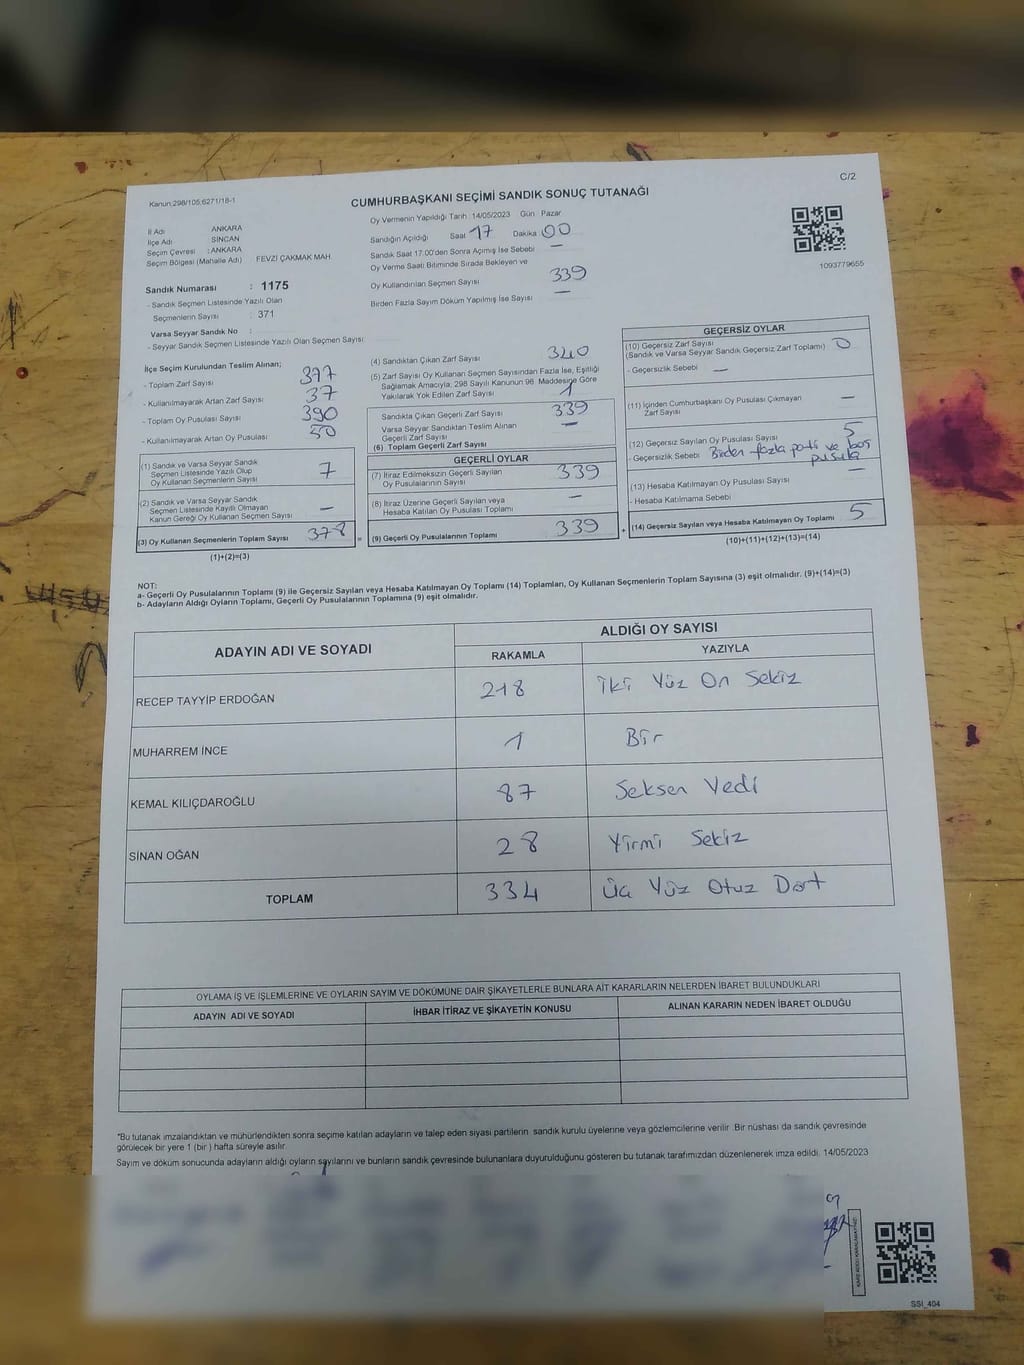 C/2
Kanun;298/105;6271/18-1
CUMHURBAŞKANI SEÇİMİ SANDIK SONUÇ TUTANAĞI
İl Adı ANKARA
İlçe Adı SİNCAN
Seçim Çevresi : ANKARA
Seçim Bölgesi (Mahalle Adı) FEVZİ ÇAKMAK MAH.
Sandık Numarası : 1175
- Sandık Seçmen Listesinde Yazılı Olan
Seçmenlerin Sayısı : 371
Varsa Seyyar Sandık No :
- Seyyar Sandık Seçmen Listesinde Yazılı Olan Seçmen Sayısı:
Oy Vermenin Yapıldığı Tarih 14/05/2023 Gün Pazar
Sandığın Açıldığı Saat 17 Dakika 00
Sandık Saat 17:00'den Sonra Açımış İse Sebebi —
Oy Verme Saati Bitiminde Sırada Bekleyen ve
Oy Kullandırılan Seçmen Sayısı 339
Birden Fazla Sayım Döküm Yapılmış İse Sayısı —
1093779655
İlçe Seçim Kurulundan Teslim Alınan;
- Toplam Zarf Sayısı 377
- Kullanılmayarak Artan Zarf Sayısı 37
- Toplam Oy Pusulası Sayısı 390
- Kullanılmayarak Artan Oy Pusulası 50
(1) Sandık ve Varsa Seyyar Sandık
Seçmen Listesinde Yazılı Olup
Oy Kullanan Seçmenlerin Sayısı 7
(2) Sandık ve Varsa Seyyar Sandık
Seçmen Listesinde Kayıtlı Olmayan
Kanun Gereği Oy Kullanan Seçmen Sayısı —
(3) Oy Kullanan Seçmenlerin Toplam Sayısı 378
(1)+(2)=(3)
(4) Sandıktan Çıkan Zarf Sayısı 340
(5) Zarf Sayısı Oy Kullanan Seçmen Sayısından Fazla İse, Eşitliği
Sağlamak Amacıyla; 298 Sayılı Kanunun 98. Maddesine Göre
Yakılarak Yok Edilen Zarf Sayısı 1
Sandıkta Çıkan Geçerli Zarf Sayısı 339
Varsa Seyyar Sandıktan Teslim Alınan
Geçerli Zarf Sayısı —
(6) Toplam Geçerli Zarf Sayısı
GEÇERLİ OYLAR
(7) İtiraz Edilmeksizin Geçerli Sayılan
Oy Pusulalarının Sayısı 339
(8) İtiraz Üzerine Geçerli Sayılan veya
Hesaba Katılan Oy Pusulası Toplamı —
= (9) Geçerli Oy Pusulalarının Toplamı 339 +
GEÇERSİZ OYLAR
(10) Geçersiz Zarf Sayısı
(Sandık ve Varsa Seyyar Sandık Geçersiz Zarf Toplamı) 0
- Geçersizlik Sebebi —
(11) İçinden Cumhurbaşkanı Oy Pusulası Çıkmayan
Zarf Sayısı —
(12) Geçersiz Sayılan Oy Pusulası Sayısı 5
- Geçersizlik Sebebi Birden fazla parti ve boş
pusula
(13) Hesaba Katılmayan Oy Pusulası Sayısı —
- Hesaba Katılmama Sebebi
(14) Geçersiz Sayılan veya Hesaba Katılmayan Oy Toplamı 5
(10)+(11)+(12)+(13)=(14)
NOT:
a- Geçerli Oy Pusulalarının Toplamı (9) ile Geçersiz Sayılan veya Hesaba Katılmayan Oy Toplamı (14) Toplamları, Oy Kullanan Seçmenlerin Toplam Sayısına (3) eşit olmalıdır. (9)+(14)=(3)
b- Adayların Aldığı Oyların Toplamı, Geçerli Oy Pusulalarının Toplamına (9) eşit olmalıdır.
ADAYIN ADI VE SOYADI ALDIĞI OY SAYISI
RAKAMLA YAZIYLA
RECEP TAYYİP ERDOĞAN 218 İki Yüz On Sekiz
MUHARREM İNCE 1 Bir
KEMAL KILIÇDAROĞLU 87 Seksen Yedi
SİNAN OĞAN 28 Yirmi Sekiz
TOPLAM 334 Üç Yüz Otuz Dört
OYLAMA İŞ VE İŞLEMLERİNE VE OYLARIN SAYIM VE DÖKÜMÜNE DAİR ŞİKAYETLERLE BUNLARA AİT KARARLARIN NELERDEN İBARET BULUNDUKLARI
ADAYIN ADI VE SOYADI İHBAR İTİRAZ VE ŞİKAYETİN KONUSU ALINAN KARARIN NEDEN İBARET OLDUĞU
*Bu tutanak imzalandıktan ve mühürlendikten sonra seçime katılan adayların ve talep eden siyasi partilerin sandık kurulu üyelerine veya gözlemcilerine verilir. Bir nüshası da sandık çevresinde
görülecek bir yere 1 (bir) hafta süreyle asılır.
Sayım ve döküm sonucunda adayların aldığı oyların sayılarını ve bunların sandık çevresinde bulunanlara duyurulduğunu gösteren bu tutanak tarafımızdan düzenlenerek imza edildi. 14/05/2023
SSI_404